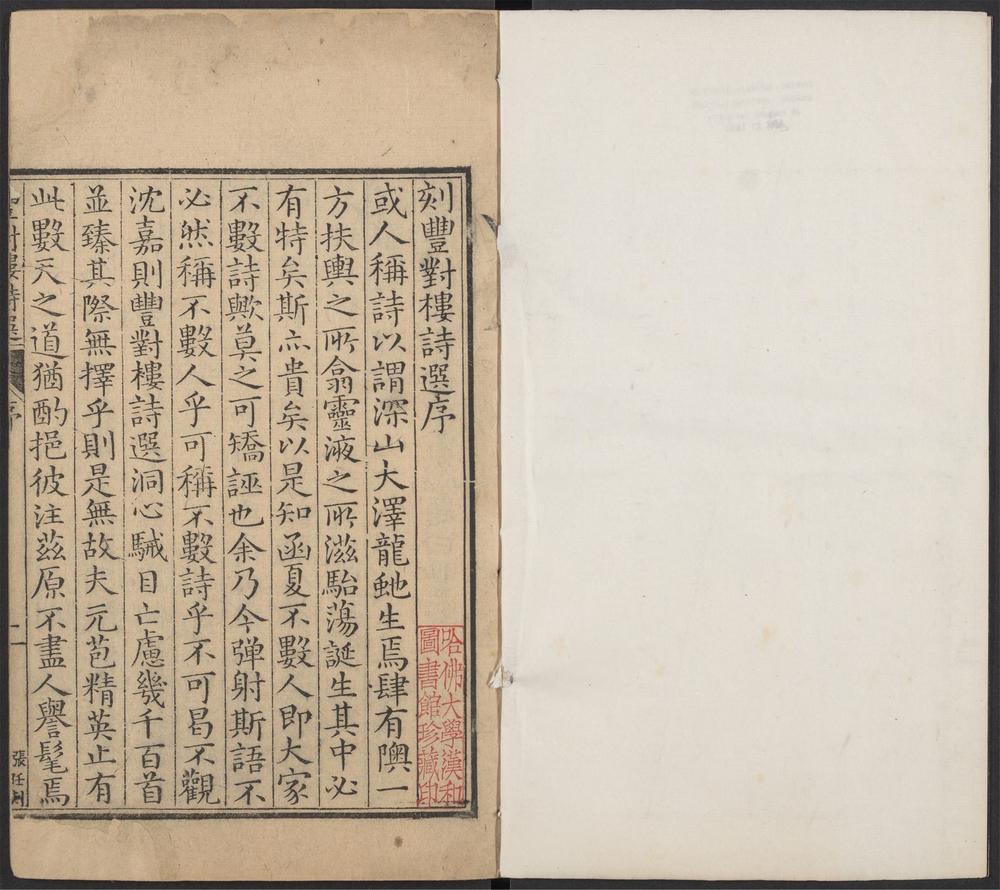 刻豐對樓詩選序
或人稱詩以謂深山大澤龍虵生焉肆有隩一
方扶輿之所翕靈液之所滋駘蕩誕生其中必
有特矣斯亦貴矣以是知函夏不數人即大家
不數詩歟莫之可矯誣也余乃今彈射斯語不
必然稱不數人乎可稱不數詩乎不可曷不觀
沈嘉則豐對樓詩選洞心駴目亡慮幾千百首
並臻其際無擇乎則是無故夫元苞精英止有
此數天之道猶酌挹彼注茲原不盡人譽髦焉
對樓詩選
序
一
張任刻
哈佛大學漢和
圖書館珍藏印